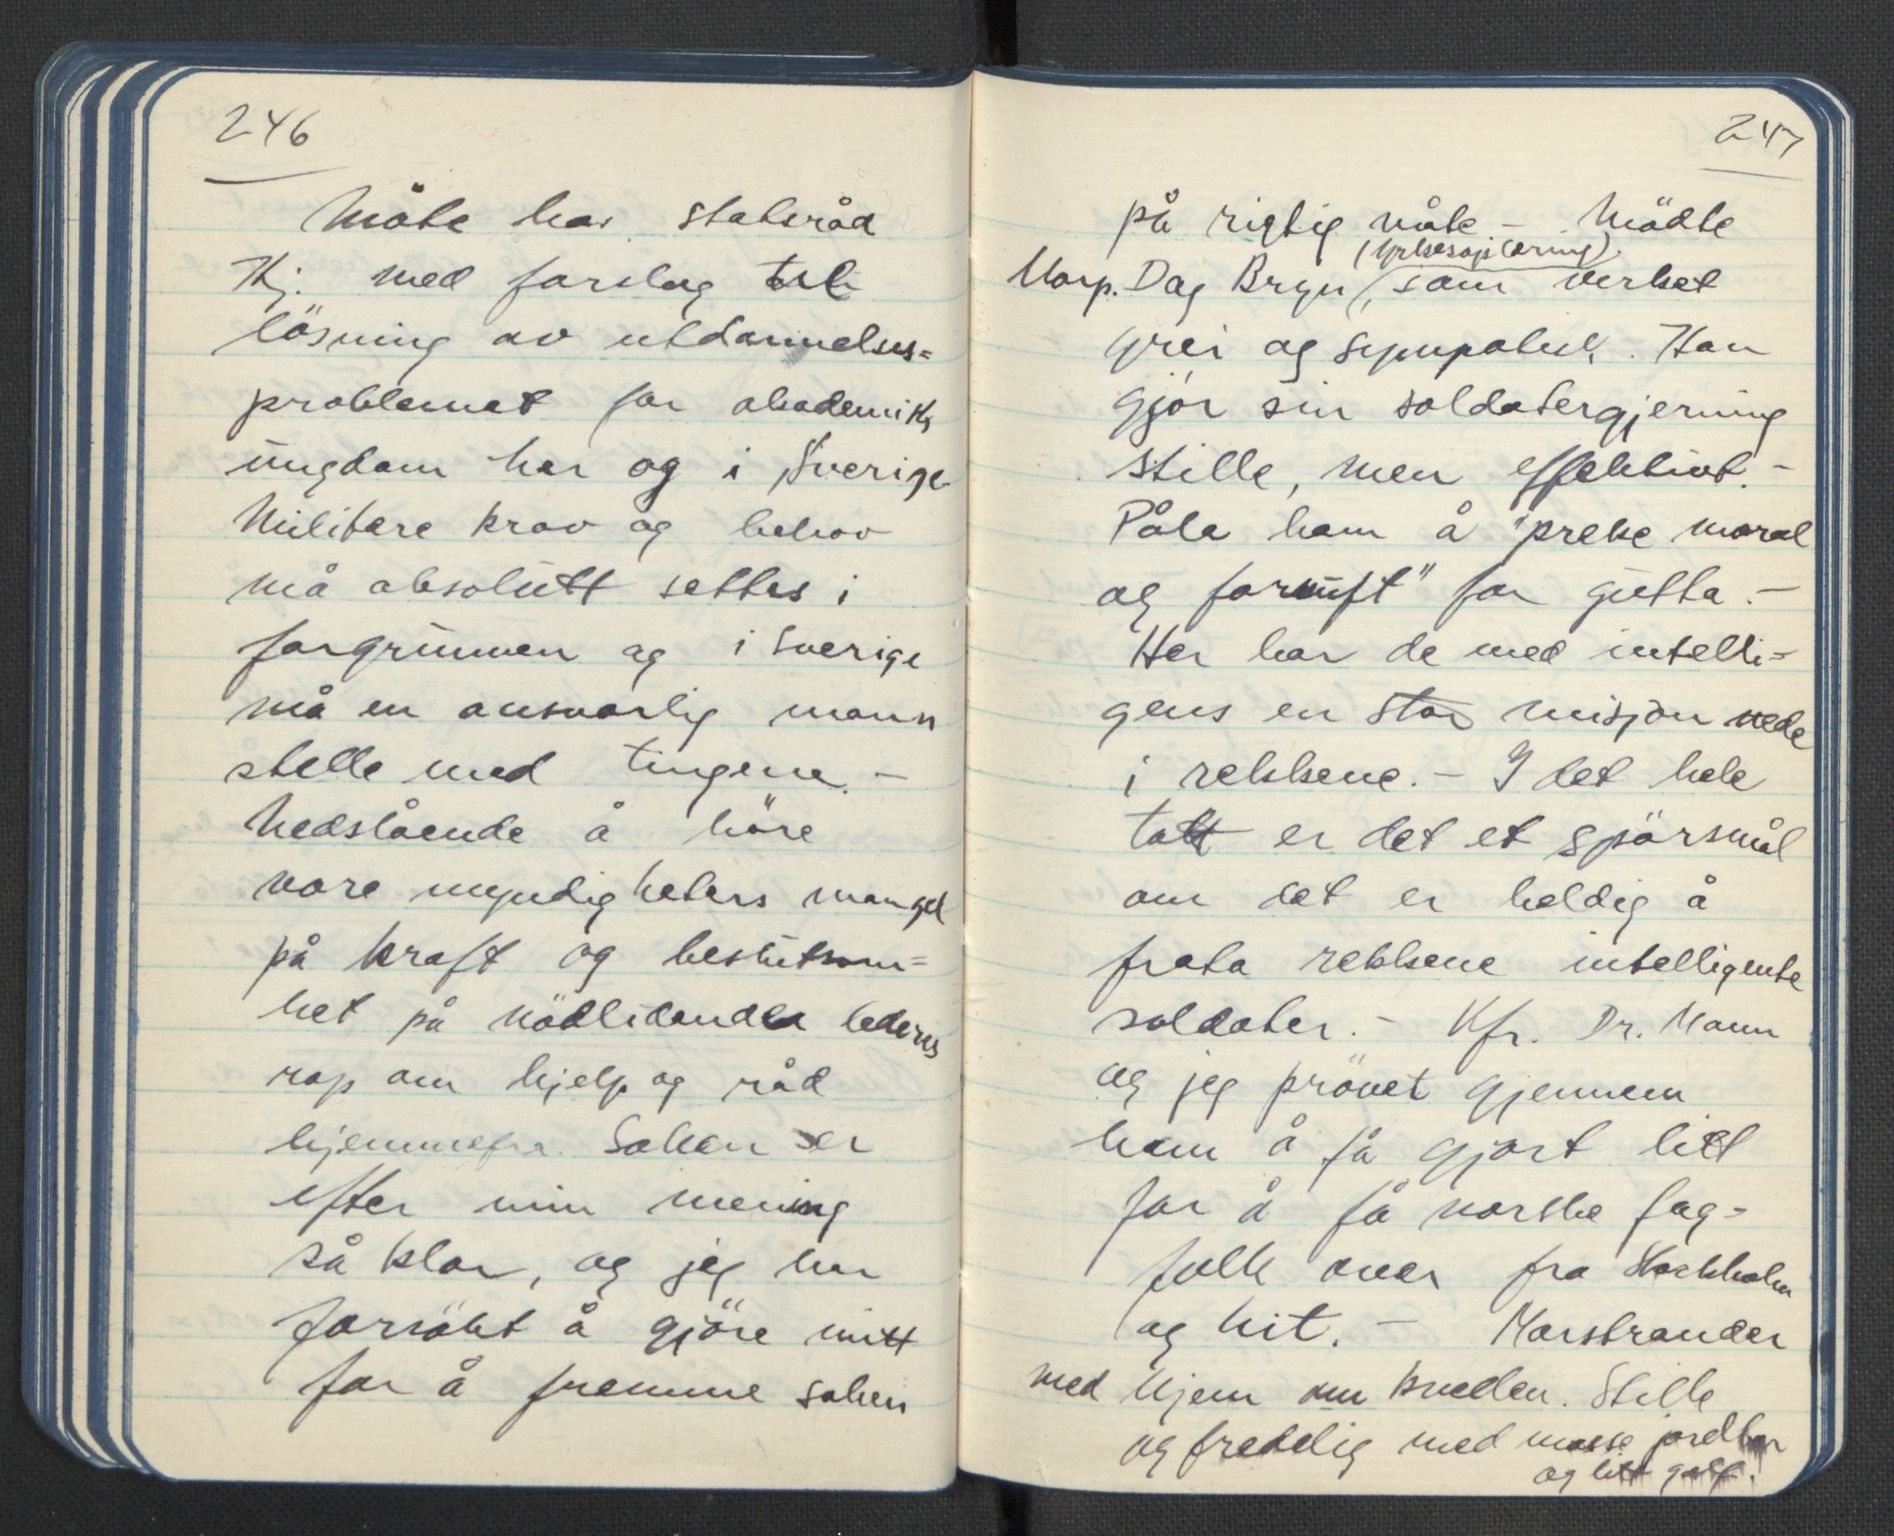 246
Måte har statsråd
Hj. med forslag til
lösning av utdannelses=
problemet for akademisk
ungdom her og i Sverige
Militære krav og behov
må absolutt settes i
forgrunnen og i Sverige
må en ansvarlig mann
stelle med tingene. -
Nedslående å höre
våre myndigheters mangel
på kraft og beslutsom=
het på nödlidende lederes
rop om hjelp og råd
hjemmefra. Saken er
efter min mening
så klar, og jeg har
forsökt å gjöre mitt
for å fremme saken
247
på rigtig måte. - Mödte
(yrkesoplæring)
Dag Bryn, som virket
grei og sympatisk. Han
gjör sin soldatergjerning
stille, men effektivt. -
Påla ham å "preke moral
og fornuft" for gutta. -
Her har de med intelli=
gens en stor misjon nede
i rekkene. - I det hele
tatt er det et spörsmål
om det er heldig å
frata rekkene intelligente
soldater. - Kfr. Dr. Mann
og jeg prövet gjennem
ham å få gjort litt
for å få norske fag=
folk over fra Stockholm
og hit. - Marstrander
med hjem om kvelden. Stille
og fredelig med masse jordbær
og litt golf.